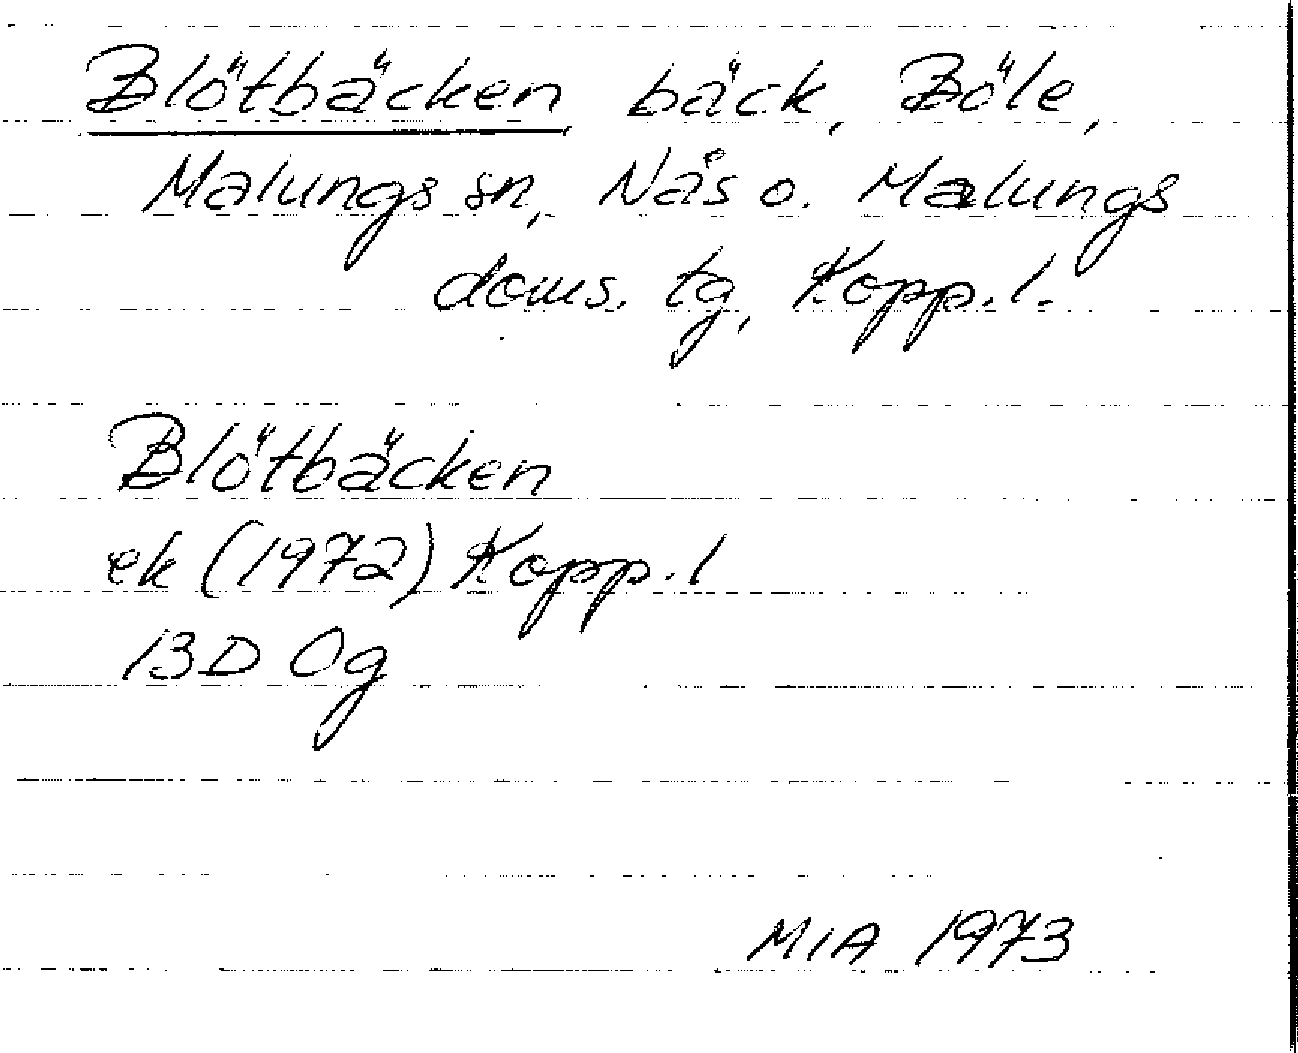 Blötbäcken bäck, Böle,
Malungs sn, Nås o. Malungs
doms. tg, Kopp. l.
Blötbäcken
ek (1972) Kopp. l
13D 0g
MIA 1973